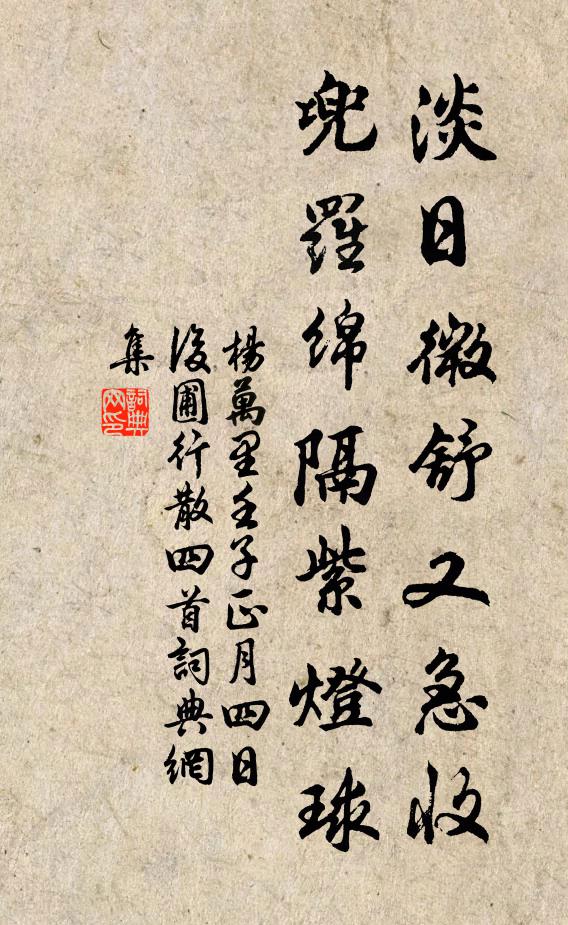 淡日微舒又急收
兜羅綿隔紫燈球
楊萬里壬子正月四日
後圃行散四首詞典網
集
詞典網印